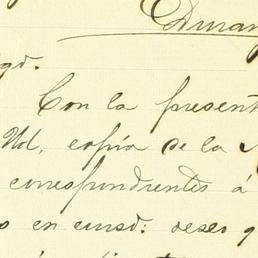 Duran
gd.
Con la present
Ud, copia de la
correspondientes á
s en curso: deseo q